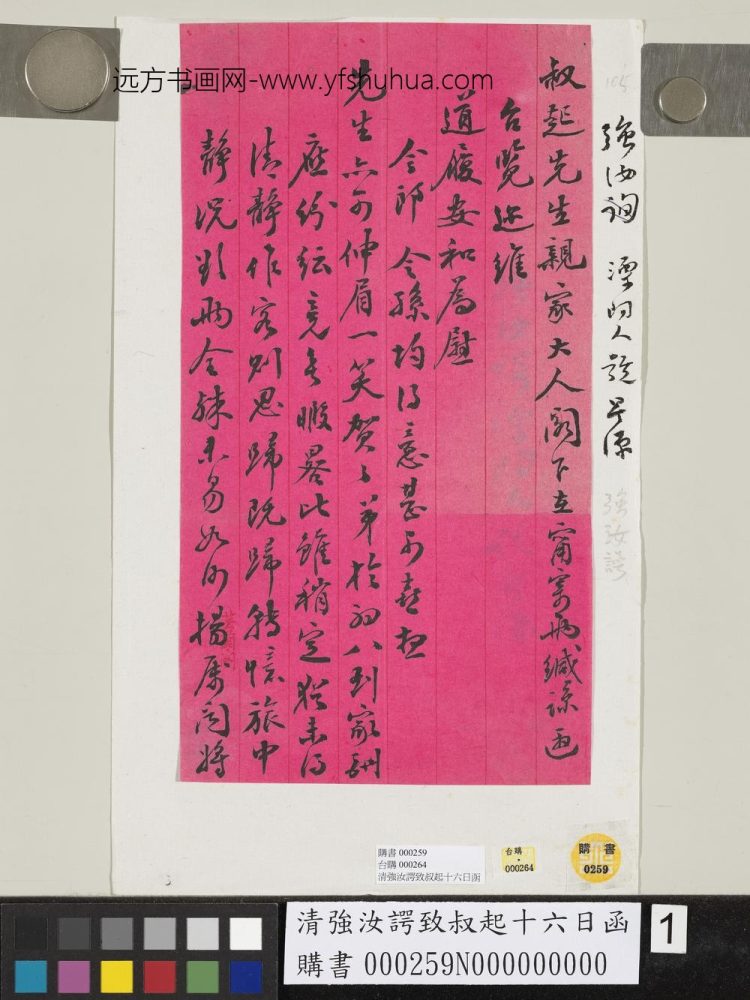 远方书画网-www.yfshuhua.com
強汝詢 溧陽人 號賡廷
強汝諤
叔起先生親家大人閣下在甯寄兩緘諒通
台覽近維
道履安和為慰
令郎 令孫均得意甚可喜想
先生亦可伸眉一笑賀賀弟於初八到家酬
應紛紜竟無暇晷比雖稍定猶未得
清靜作客則思歸既歸轉憶旅中
靜況 兩令妹未易
105
購書 000259
台購 000264
清強汝諤致叔起十六日函
台購
000264
購書
0259
清強汝諤致叔起十六日函
購書 000259N000000000
1